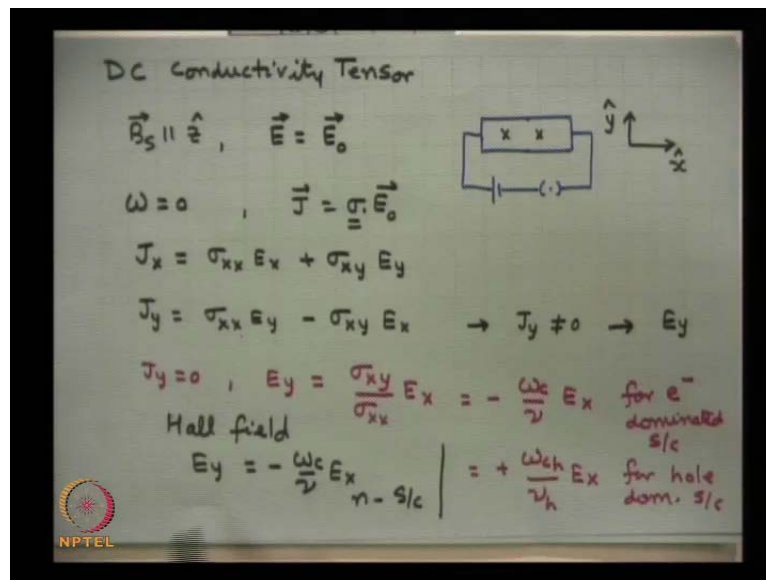 DC Conductivity Tensor
B⃗s || ẑ , E⃗ = E⃗₀
ŷ x̂
x x
ω = 0 , J⃗ = σ̲̲ . E⃗₀
Jx = σxx Ex + σxy Ey
Jy = σxx Ey - σxy Ex → Jy ≠ 0 → Ey
Jy = 0 , Ey = σxy/σxx Ex = - ωc/ν Ex for e⁻ dominated s/c
Hall field
Ey = - ωc/ν Ex n - s/c | = + ωch/νh Ex for hole dom. s/c
NPTEL